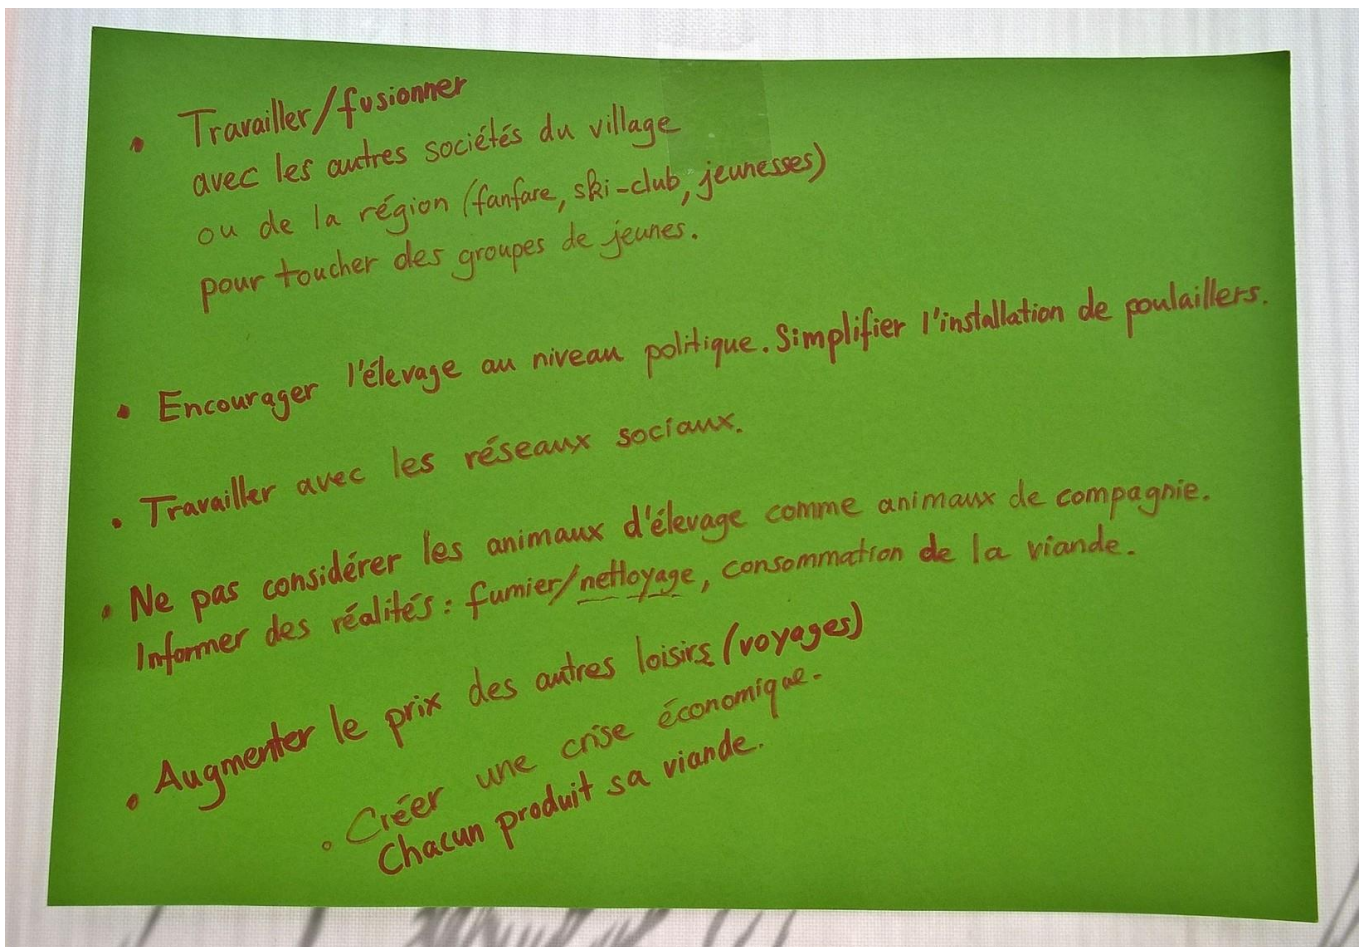 • Travailler/fusionner
avec les autres sociétés du village
ou de la région (fanfare, ski-club, jeunesses)
pour toucher des groupes de jeunes.
• Encourager l'élevage au niveau politique. Simplifier l'installation de poulaillers.
• Travailler avec les réseaux sociaux.
• Ne pas considérer les animaux d'élevage comme animaux de compagnie.
Informer des réalités : fumier/nettoyage, consommation de la viande.
• Augmenter le prix des autres loisirs (voyages)
• Créer une crise économique.
Chacun produit sa viande.